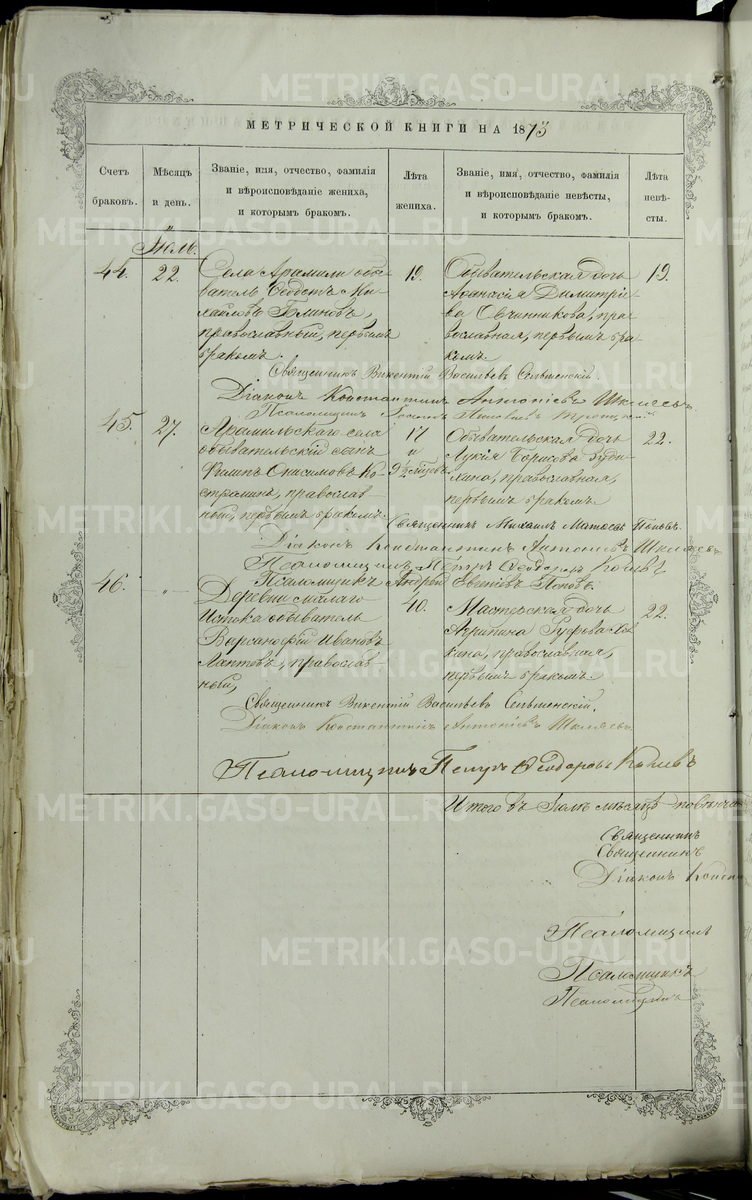 МЕТРИЧЕСКОЙ КНИГИ НА 1873
Счетъ браковъ.
Мѣсяцъ и день.
Званіе, имя, отчество, фамилія и вѣроисповѣданіе жениха, и которымъ бракомъ.
Лѣта жениха.
Званіе, имя, отчество, фамилія и вѣроисповѣданіе невѣсты, и которымъ бракомъ.
Лѣта невѣсты.
Іюль.
44. 22.
Села Арамили обы-
ватель Ѳедотъ Ми-
хайловъ Блиновъ,
православный, первымъ
бракомъ.
19.
Обывательская дочь
Аѳанасія Димитріе-
ва Овчинникова, пра-
вославная, первымъ бра-
комъ
19.
Священникъ Викентій Васильевъ Сельменскій.
Діаконъ Константинъ Антоніевъ Шкляевъ
Псаломщикъ
45. 27.
Арамильскаго села
обывательскій сынъ
Филипъ Онисимовъ Ко-
стромина, православ-
ный, первымъ бракомъ.
17
и
9½ мѣсяцевъ
Обывательская дочь
Лукія Борисова
православная,
первымъ бракомъ
22.
Священникъ Михаилъ Матѳеевъ Поповъ.
Діаконъ Константинъ Антоніевъ Шкляевъ
Псаломщикъ Петръ Ѳеодоровъ Кочневъ
Псаломщикъ Андрей Евгеніевъ Поповъ.
46. -"-
Деревни Малаго
Истока обыватель
Варсанофій Ивановъ
Лаптевъ, православ-
ный,
40.
Мастерская дочь
Агрипина Руфова
православная,
первымъ бракомъ
22.
Священникъ Викентій Васильевъ Сельменскій.
Діаконъ Константинъ Антоніевъ Шкляевъ
Псаломщикъ Петръ Ѳеодоровъ Кочневъ
Итого въ Іюлѣ мѣсяцѣ повѣнча
Священникъ
Священникъ
Діаконъ Конста
Псаломщикъ
Псаломщикъ
Псаломщикъ
METRIKI.GASO-URAL.RU